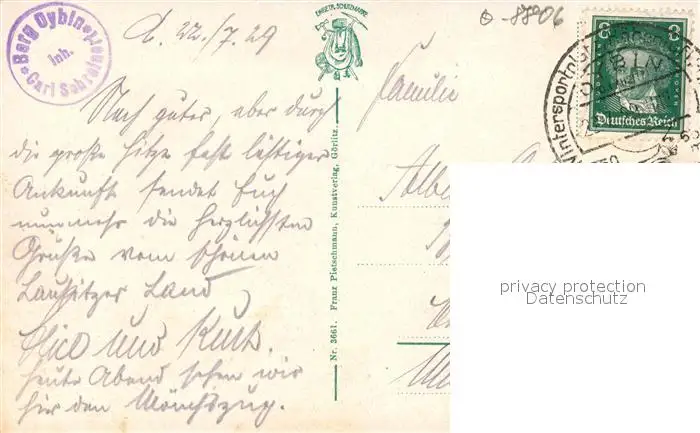 Berg Oybin
Inh.
Carl
EINGETR. SCHUTZMARKE
d. 22./7.29
8-88906
8 8
Deutsches Reich
Wintersportpl
Familie
Nach guter, aber durch
die große Hitze fast lästiger
Ankunft sendet Euch
nunmehr die herzlichsten
Grüße vom schönen
Lausitzer Land
und Kurt.
heute Abend sehen wir
hier den Mönchszug.
Nr. 3661. Franz Pietschmann, Kunstverlag, Görlitz.
privacy protection
Datenschutz